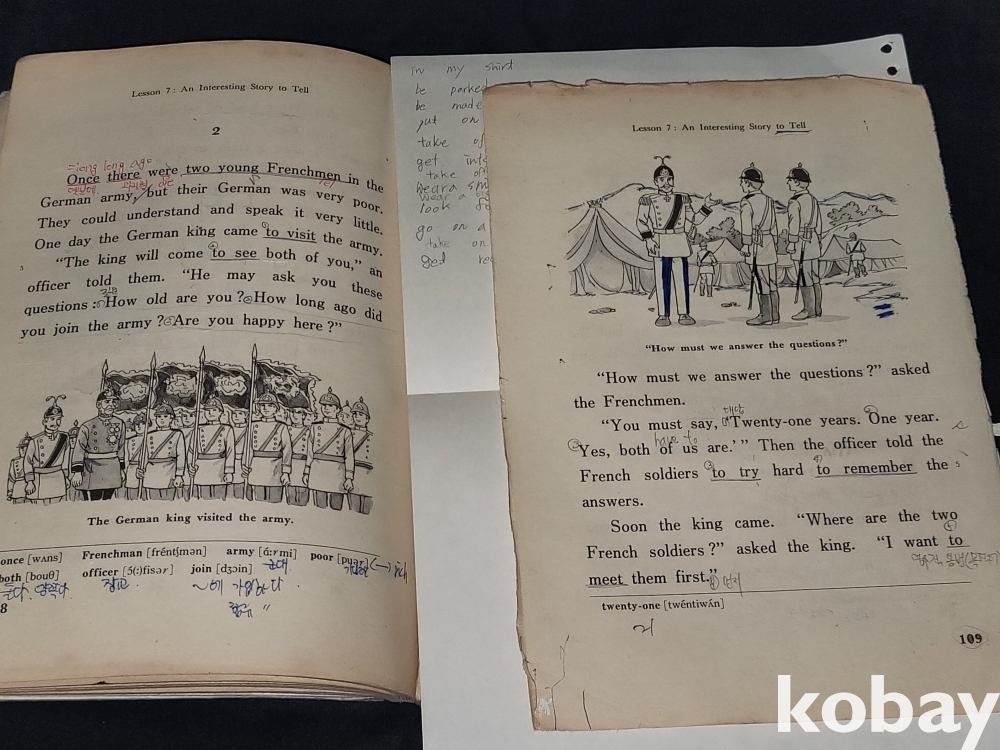 Lesson 7: An Interesting Story to Tell
2
=long long ago
Once there were two young Frenchmen in the
옛날에
German army, but their German was very poor.
They could understand and speak it very little.
One day the German king came to visit the army.
"The king will come to see both of you," an
officer told them. "He may ask you these
질문
questions: How old are you? How long ago did
you join the army? Are you happy here?"
The German king visited the army.
once [wʌns] Frenchman [fréntʃmən] army [á:rmi] poor [puər]
군대 가난한 rich
both [bouθ] officer [ɔ́(:)fisər] join [dʒɔin]
둘다. 양쪽다. 장교 ~에 가입하다
8
in my shirt
be parked
be made
put on
take of
get into
take off
wear a
look
go on a
take on
get
Lesson 7: An Interesting Story to Tell
"How must we answer the questions?"
"How must we answer the questions?" asked
the Frenchmen.
대답
"You must say, 'Twenty-one years. One year.
have to
Yes, both of us are.'" Then the officer told the
French soldiers to try hard to remember the
answers.
Soon the king came. "Where are the two
French soldiers?" asked the king. "I want to
meet them first."
먼저
twenty-one [twéntiwán]
21
109
kobay